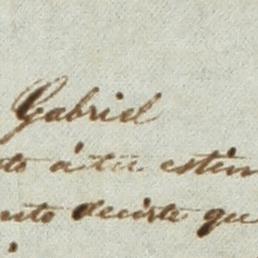 Gabriel
to á tu estim
nto decirte qu